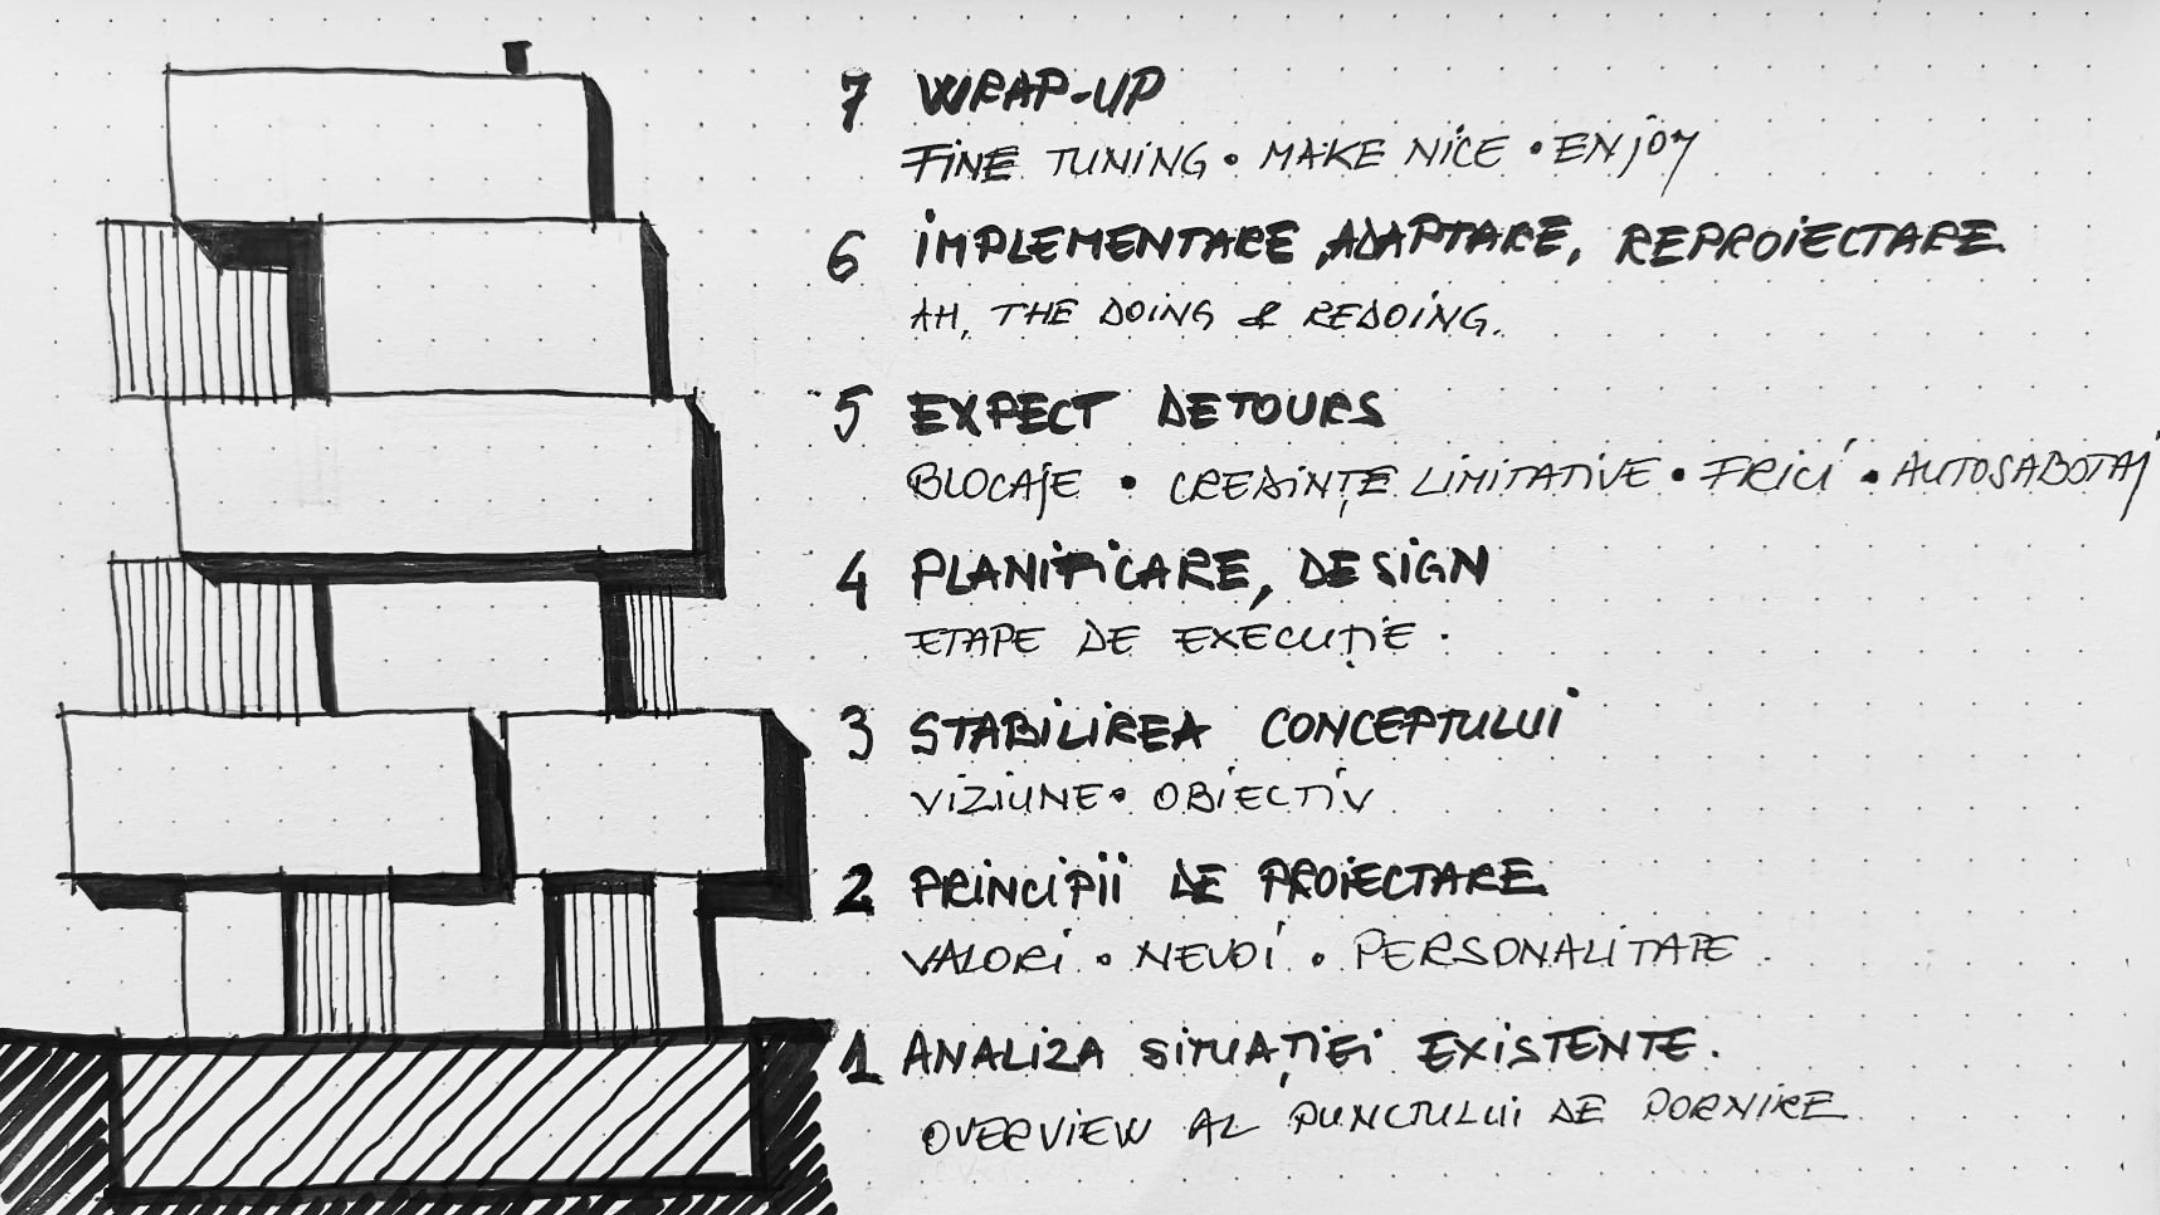 7 WRAP-UP
FiNE TUNiNG • MAKE NiCE • ENjOY
6 iMPLEMENTARE, ADAPTARE, REPROiECTARE
AH, THE DOiNG & REDOiNG.
5 EXPECT DETOURS
BLOCAjE • CREDiNȚE LiMiTATiVE • FRiCi • AUTOSABOTAj
4 PLANiFiCARE, DESiGN
ETAPE DE EXECUȚiE .
3 STABiLiREA CONCEPTULUi
ViZiUNE • OBiECTiV
2 PRiNCiPii DE PROiECTARE
VALORi • NEVOi • PERSONALiTATE .
1 ANALiZA SiTUAȚiEi EXiSTENTE.
OVERViEW AL PUNCTULUi DE PORNiRE